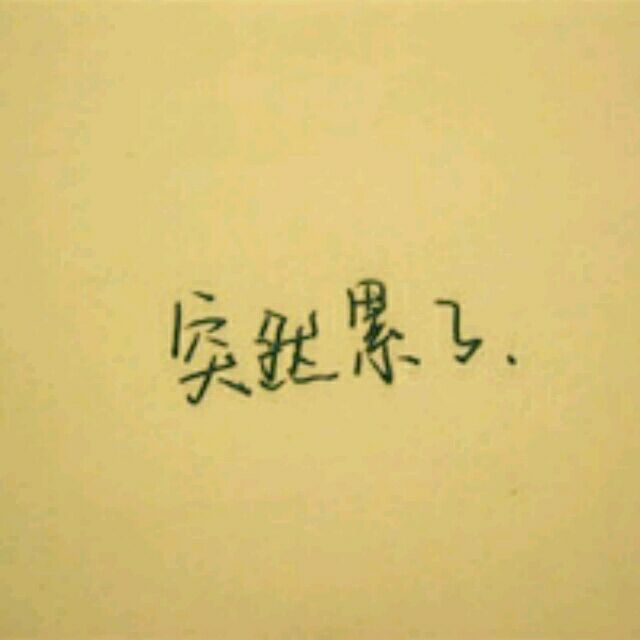 突然累了.